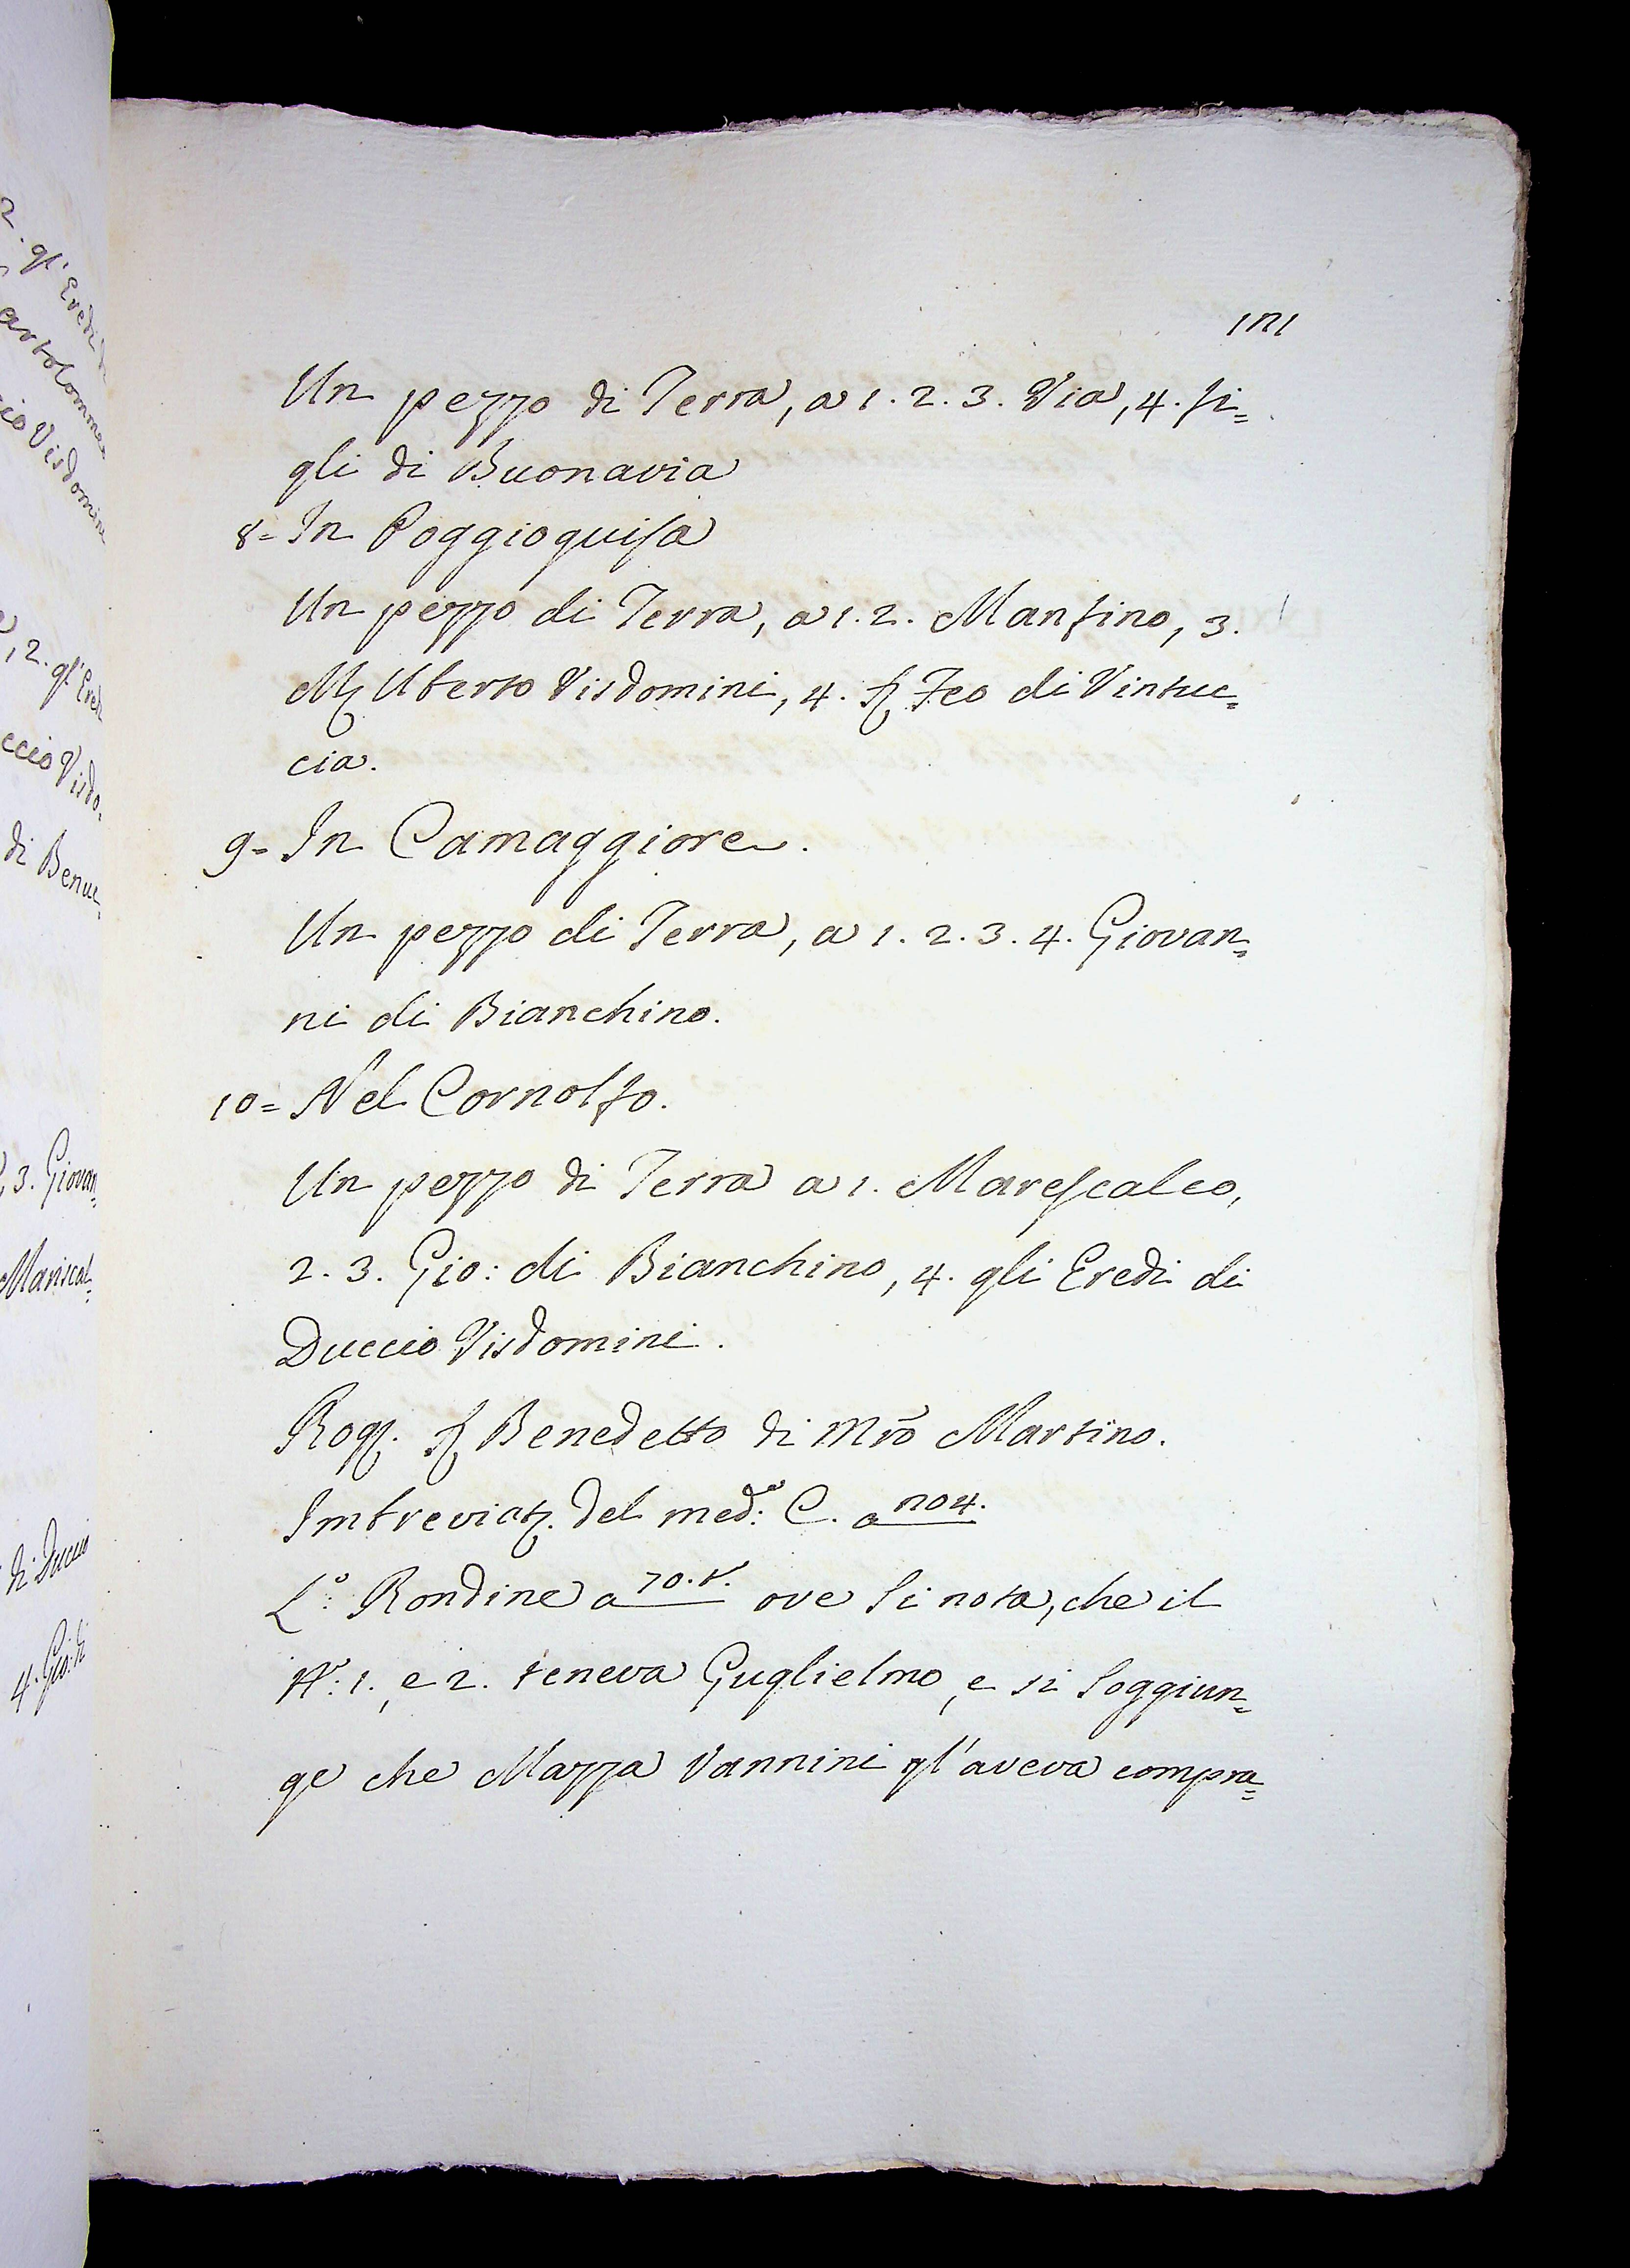 Un pezzo di Terra, a 1. 2. 3. Via, 4. fi=
gli di Buonavia
8= In Poggioguisa
Un pezzo di Terra, a 1. 2. Manfino, 3.
Uberto Visdomini, 4. Feo di Vintuc=
cia.
9= In Camaggiore.
Un pezzo di Terra, a 1. 2. 3. 4. Giovan=
ni di Bianchino.
10= Nel Cornolfo.
Un pezzo di Terra a 1. Marescalco,
2. 3. Gio: di Bianchino, 4. gli Eredi di
Duccio Visdomini.
Rog. Benedetto di Mro Martino.
Imbreviat. del med:o C. a
L.o Rondine a 70.t. ove si nota, che il
N:o 1., e 2. teneva Guglielmo, e si soggiun=
ge che Mazza Vannini gl'aveva compra=
2. gl'Eredi
artolomme
cio Visdomini
, 2. gl'Ered
ccio Visdo=
di Benuc=
, 3. Giovan=
Mariscal=
di Duccio
4. Gio: di